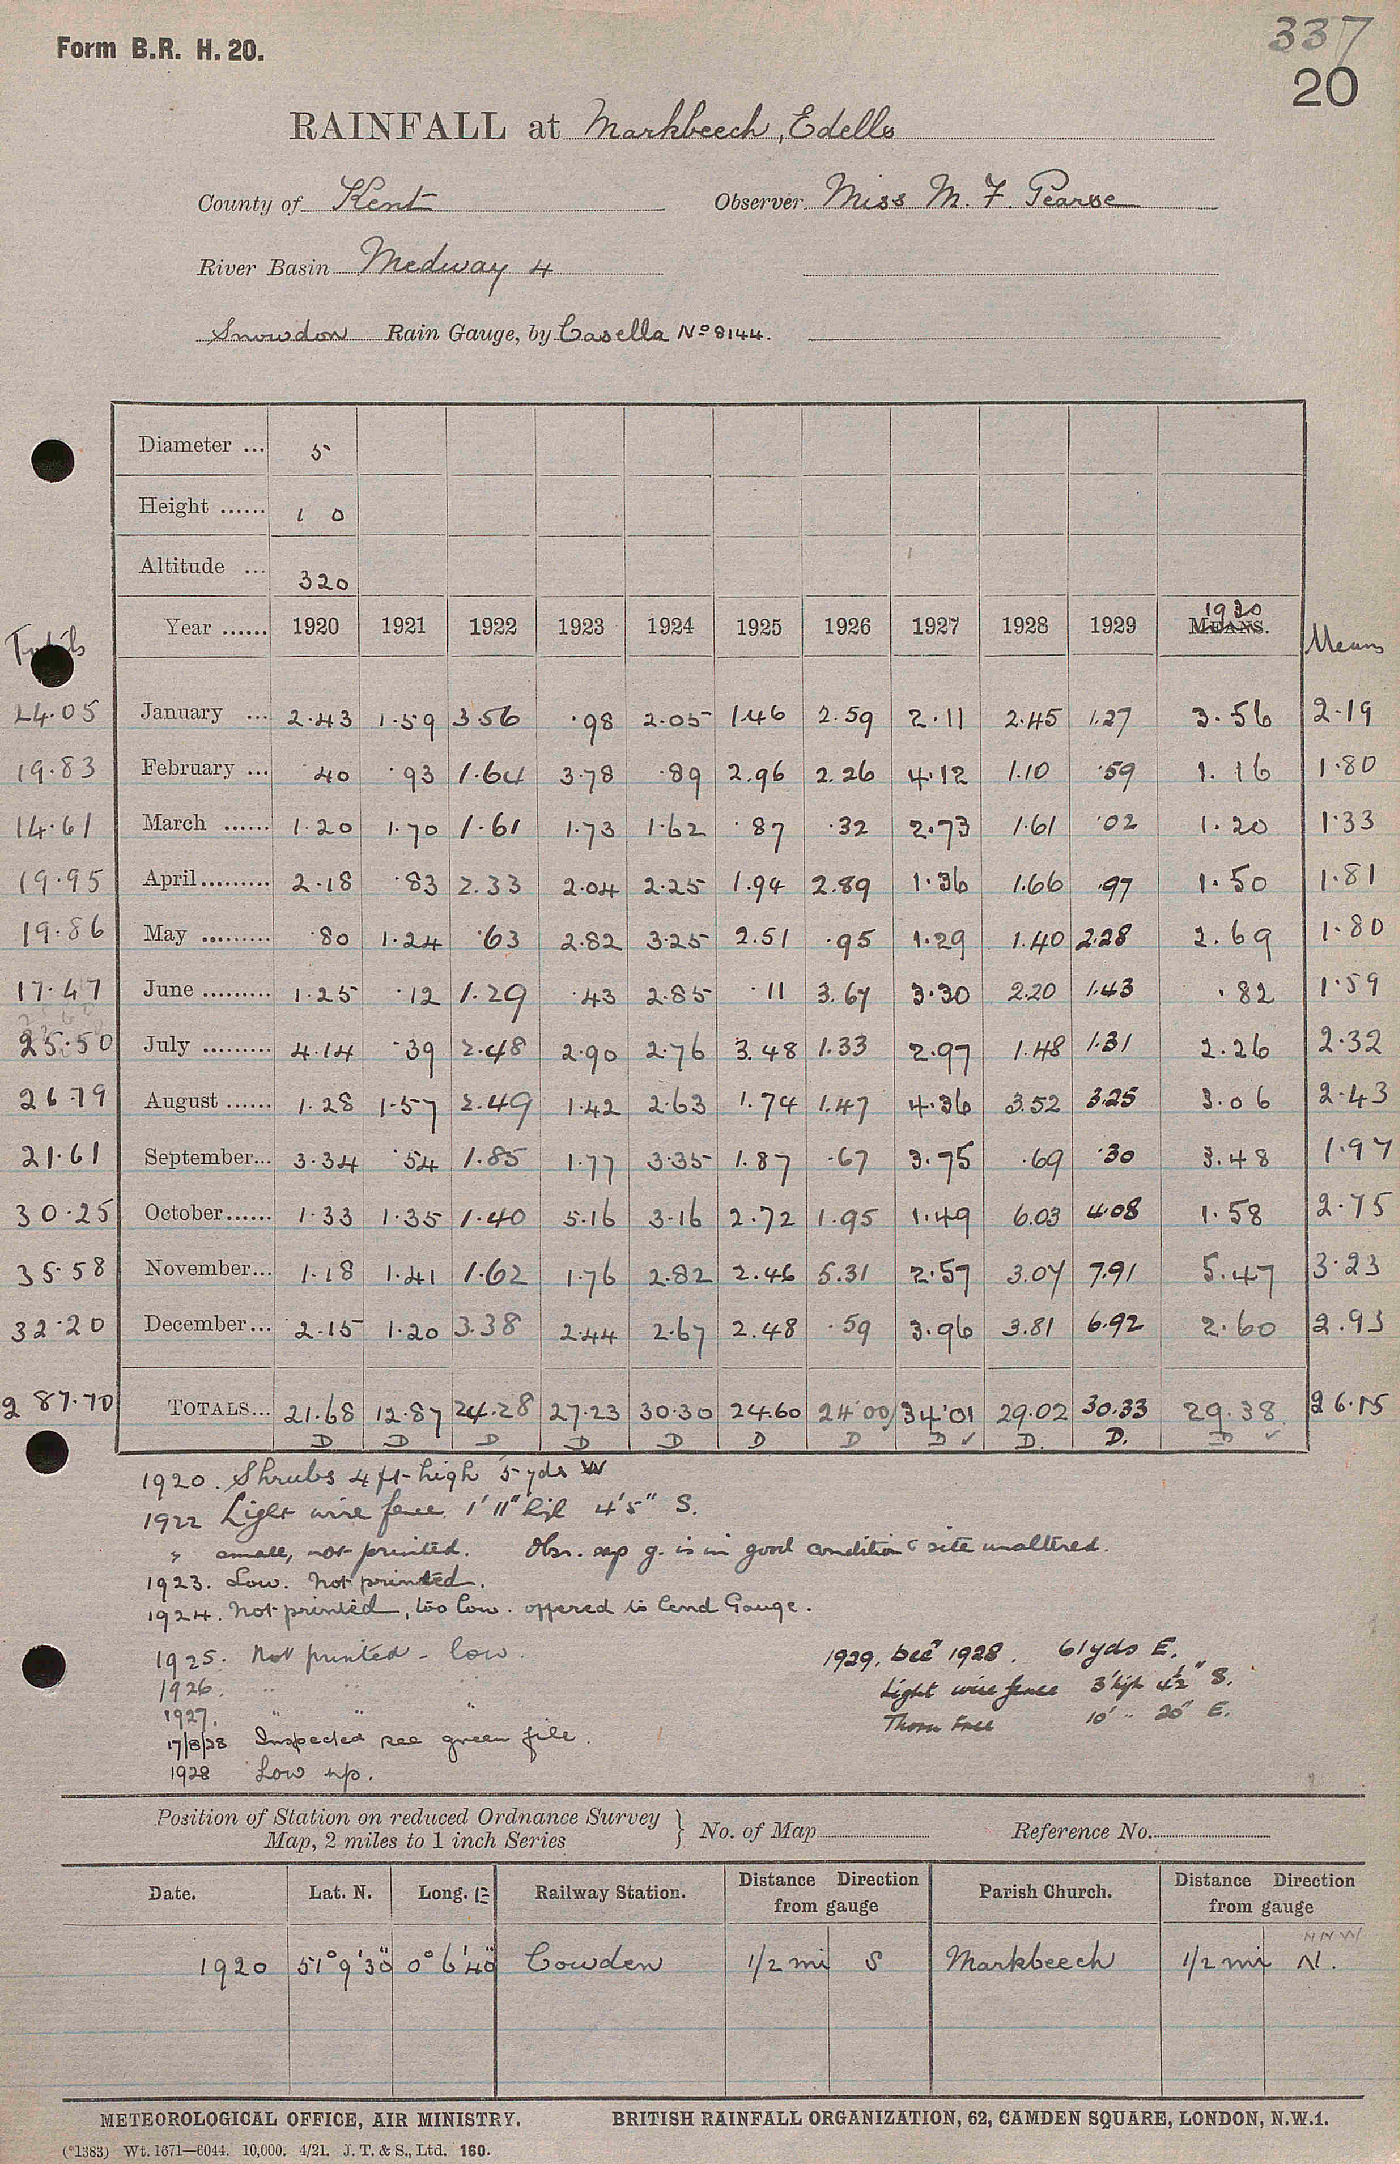 337
Form B.R. H. 20.
20
RAINFALL at Markbeech, Edells
County of Kent Observer Miss M. F. Pearse
River Basin Medway 4
Snowdon Rain Gauge, by Casella No 8144.
Diameter ... 5
Height ...... 1 0
Altitude ... 320
Totals Year ...... 1920 1921 1922 1923 1924 1925 1926 1927 1928 1929 1930 MEANS. Means
24.05 January ... 2.43 1.59 3.56 .98 2.05 1.46 2.59 2.11 2.45 1.27 3.56 2.19
19.83 February ... .40 .93 1.64 3.78 .89 2.96 2.26 4.12 1.10 .59 1.16 1.80
14.61 March ...... 1.20 1.70 1.61 1.73 1.62 .87 .32 2.73 1.61 .02 1.20 1.33
19.95 April ......... 2.18 .83 2.33 2.04 2.25 1.94 2.89 1.36 1.66 .97 1.50 1.81
19.86 May ......... .80 1.24 .63 2.82 3.25 2.51 .95 1.29 1.40 2.28 2.69 1.80
17.47 June ......... 1.25 .12 1.29 .43 2.85 .11 3.67 3.30 2.20 1.43 .82 1.59
25.50 July ......... 4.14 .39 2.48 2.90 2.76 3.48 1.33 2.97 1.48 1.31 2.26 2.32
26.79 August ...... 1.28 1.57 2.49 1.42 2.63 1.74 1.47 4.36 3.52 3.25 3.06 2.43
21.61 September... 3.34 .54 1.85 1.77 3.35 1.87 .67 3.75 .69 .30 3.48 1.97
30.25 October...... 1.33 1.35 1.40 5.16 3.16 2.72 1.95 1.49 6.03 4.08 1.58 2.75
35.58 November... 1.18 1.41 1.62 1.76 2.82 2.46 5.31 2.57 3.07 7.91 5.47 3.23
32.20 December... 2.15 1.20 3.38 2.44 2.67 2.48 .59 3.96 3.81 6.92 2.60 2.93
287.70 TOTALS... 21.68 12.87 24.28 27.23 30.30 24.60 24.00 34.01 29.02 30.33 29.38 26.15
D D D D D D D D ✓ D. D. D ✓
1920. Shrubs 4 ft high 5 yds W
1922 Light wire fence 1' 11" high 4' 5" S.
" small, not printed. Obsr. says g. is in good condition & site unaltered.
1923. Low. Not printed.
1924. Not printed, too low. offered to lend Gauge.
1925. Not printed - low.
1926. " "
1927. " " "
17/8/28 Inspected see green file.
1928 Low np.
1929. Decr 1928. 61 yds E.
Light wire fence 3' high 4½" S.
Thorn Tree 10' " 20' E.
Position of Station on reduced Ordnance Survey Map, 2 miles to 1 inch Series } No. of Map Reference No.
Date. Lat. N. Long. E Railway Station. Distance Direction from gauge Parish Church. Distance Direction from gauge
NNW
1920 51° 9' 30" 0° 6' 40" Cowden 1/2 mi S Markbeech 1/2 mi N.
METEOROLOGICAL OFFICE, AIR MINISTRY. BRITISH RAINFALL ORGANIZATION, 62, CAMDEN SQUARE, LONDON, N.W.1.
(*1383) Wt. 1671—6044. 10,000. 4/21. J. T. & S., Ltd. 160.